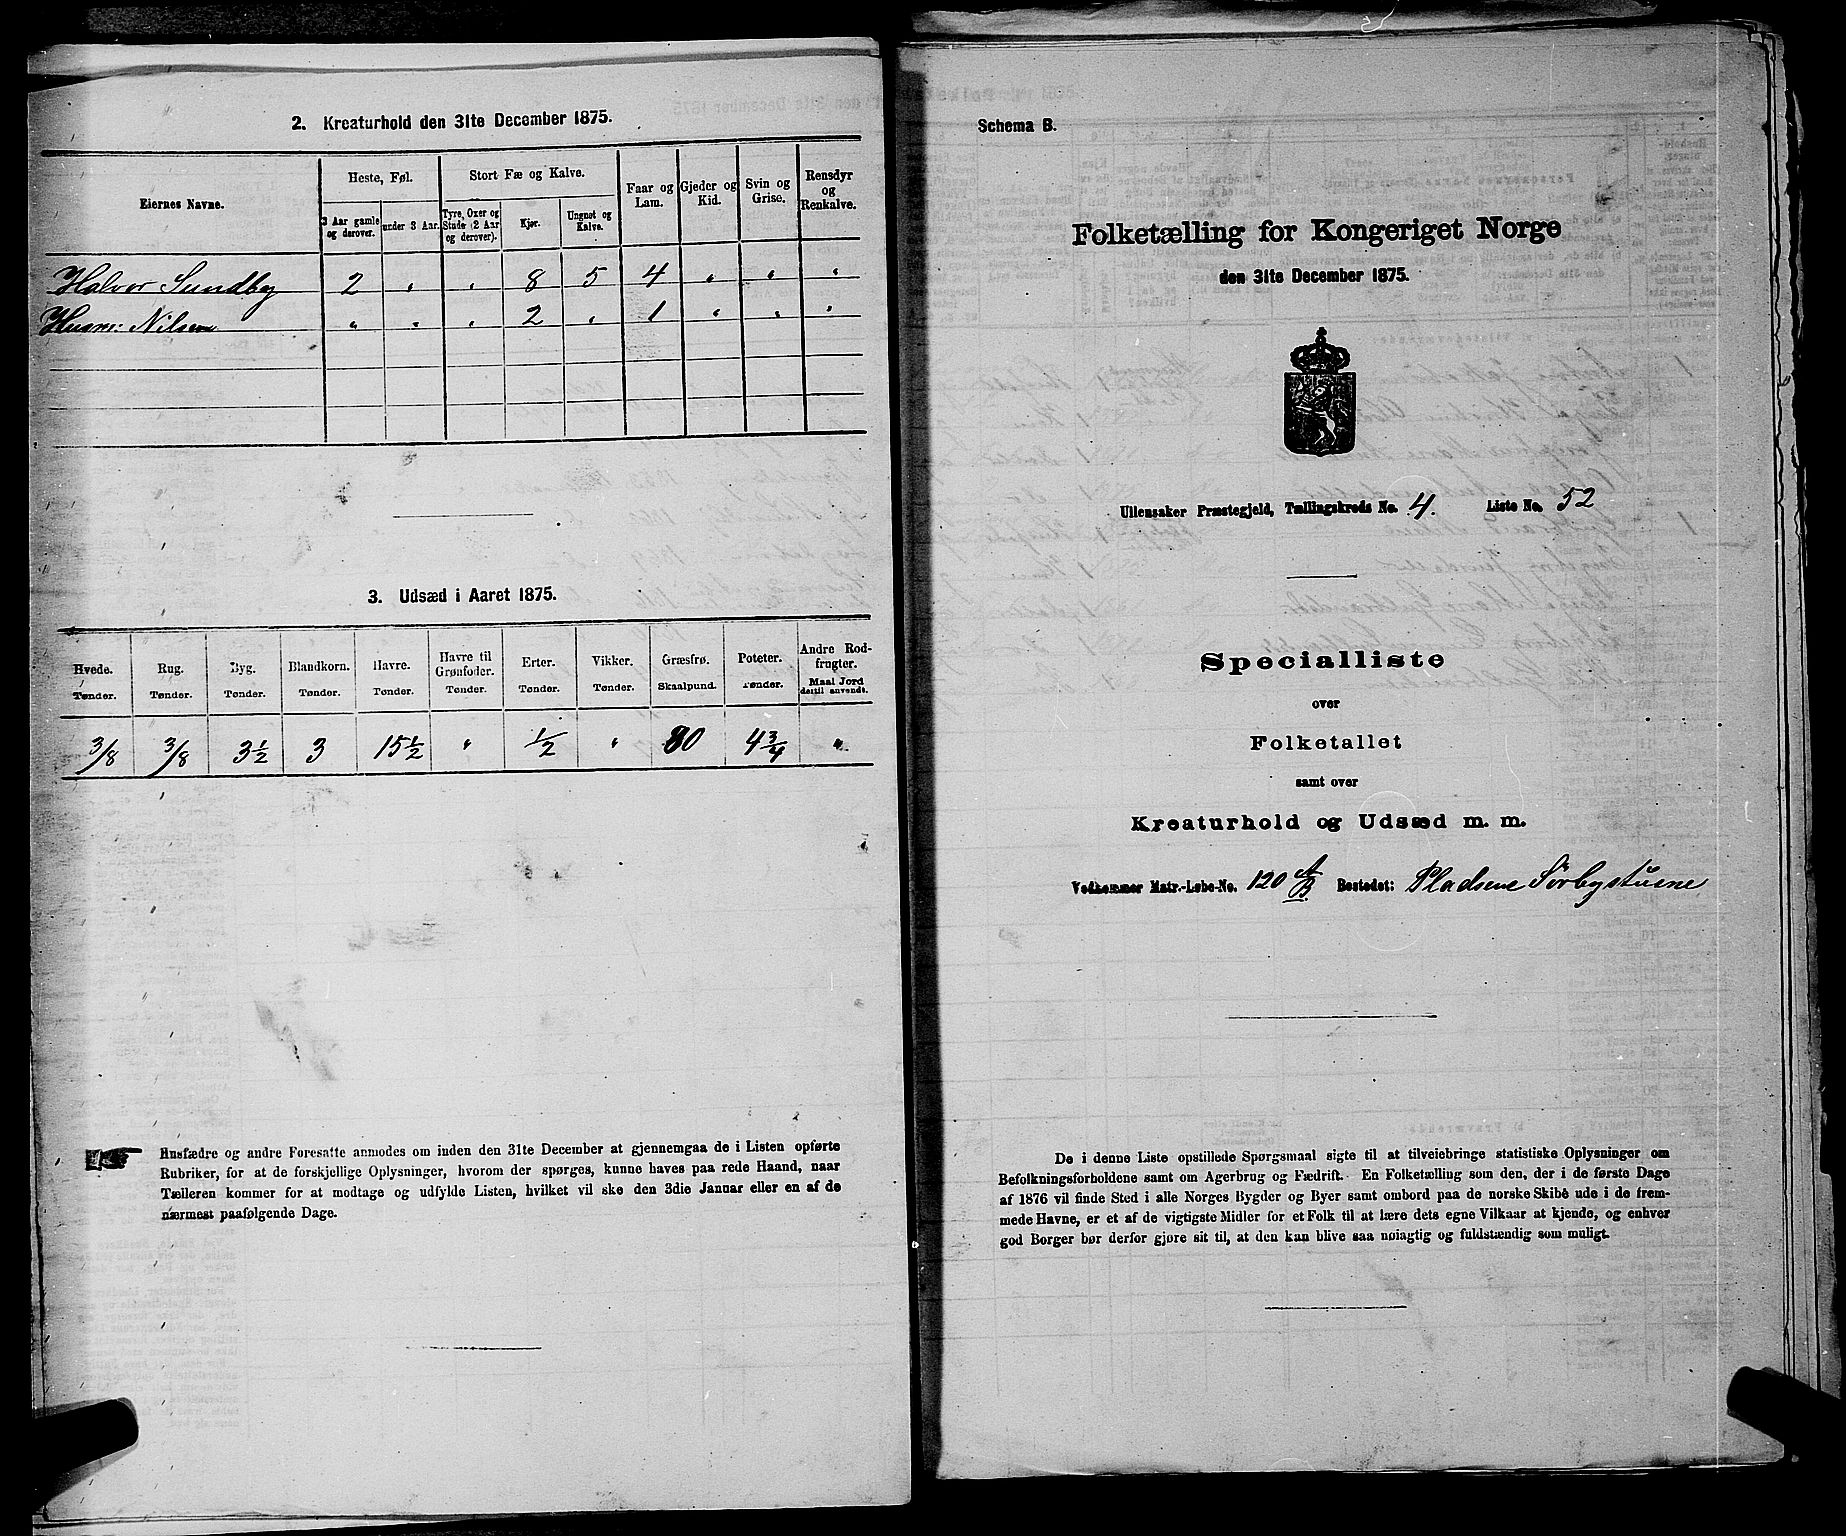 2. Kreaturhold den 31te December 1875.
Eiernes Navne.
Heste, Føl.
Stort Fæ og Kalve.
Faar og Lam.
Gjeder og Kid.
Svin og Grise.
Rensdyr og Renkalve.
3 Aar gamle og derover.
under 3 Aar.
Tyre, Oxer og Stude (2 Aar og derover).
Kjør.
Ungnøt og Kalve.
Halvor Sundby 2 " " 8 5 4 " " "
Husm: Nilsen " " " 2 " 1 " " "
3. Udsæd i Aaret 1875.
Hvede. Rug. Byg. Blandkorn. Havre. Havre til Grønfoder. Erter. Vikker. Græsfrø. Poteter. Andre Rodfrugter.
Tønder. Tønder. Tønder. Tønder. Tønder. Tønder. Tønder. Tønder. Skaalpund. Tønder. Maal Jord dertil anvendt.
3/8 3/8 3 1/2 3 15 1/2 " 1/2 " 80 4 3/4 "
Husfædre og andre Foresatte anmodes om inden den 31te December at gjennemgaa de i Listen opførte
Rubriker, for at de forskjellige Oplysninger, hvorom der spørges, kunne haves paa rede Haand, naar
Tælleren kommer for at modtage og udfylde Listen, hvilket vil ske den 3die Januar eller en af de
nærmest paafølgende Dage.
Schema B.
Folketælling for Kongeriget Norge
den 31te December 1875.
Ullensaker Præstegjeld, Tællingskreds No. 4. Liste No. 52
Specialliste
over
Folketallet
samt over
Kreaturhold og Udsæd m. m.
Vedkommer Matr.-Løbe-No. 120 A/B Bostedet: Pladsene Sørbystuene
De i denne Liste opstillede Spørgsmaal sigte til at tilveiebringe statistiske Oplysninger om
Befolkningsforholdene samt om Agerbrug og Fædrift. En Folketælling som den, der i de første Dage
af 1876 vil finde Sted i alle Norges Bygder og Byer samt ombord paa de norske Skibe ude i de frem-
mede Havne, er et af de vigtigste Midler for et Folk til at lære dets egne Vilkaar at kjende, og enhver
god Borger bør derfor gjøre sit til, at den kan blive saa nøiagtig og fuldstændig som muligt.